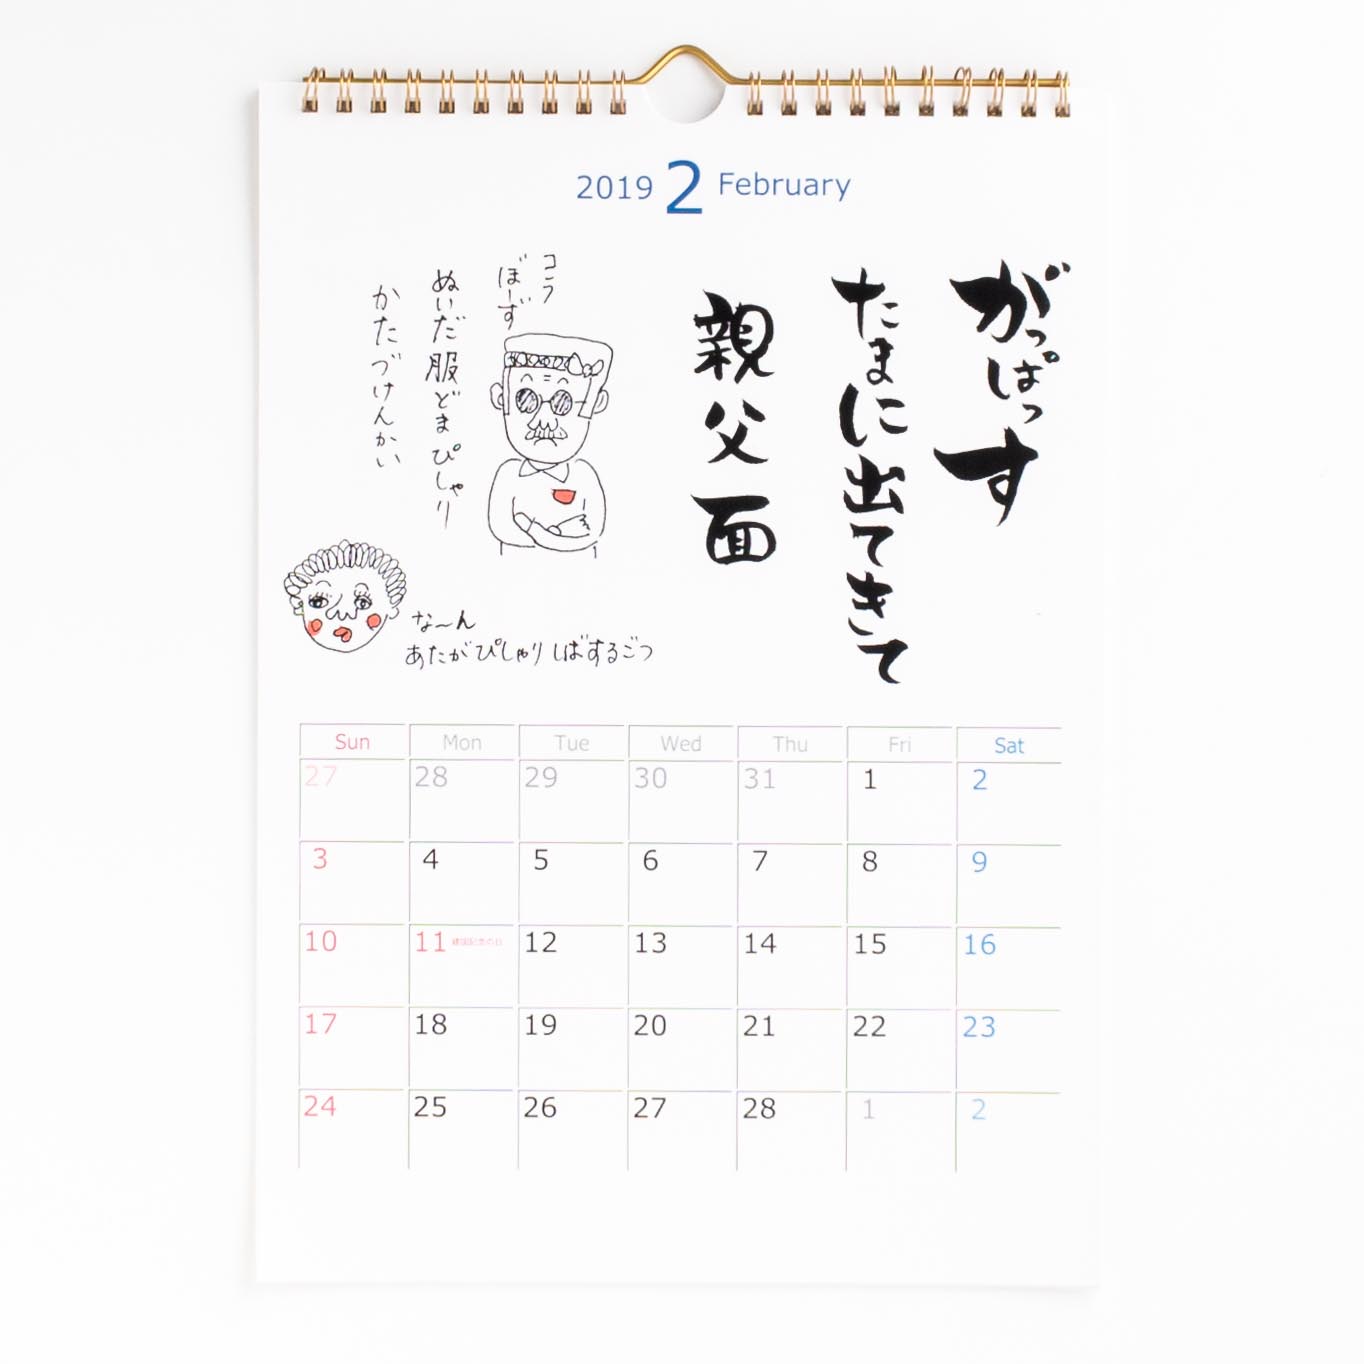 2019 2 February
がっぱっす
たまに出てきて
親父面
コラ
ぼーず
ぬいだ服どまぴしゃり
かたづけんかい
な〜ん
あたがぴしゃりしばするごつ
Sun Mon Tue Wed Thu Fri Sat
27 28 29 30 31 1 2
3 4 5 6 7 8 9
10 11 建国記念の日 12 13 14 15 16
17 18 19 20 21 22 23
24 25 26 27 28 1 2